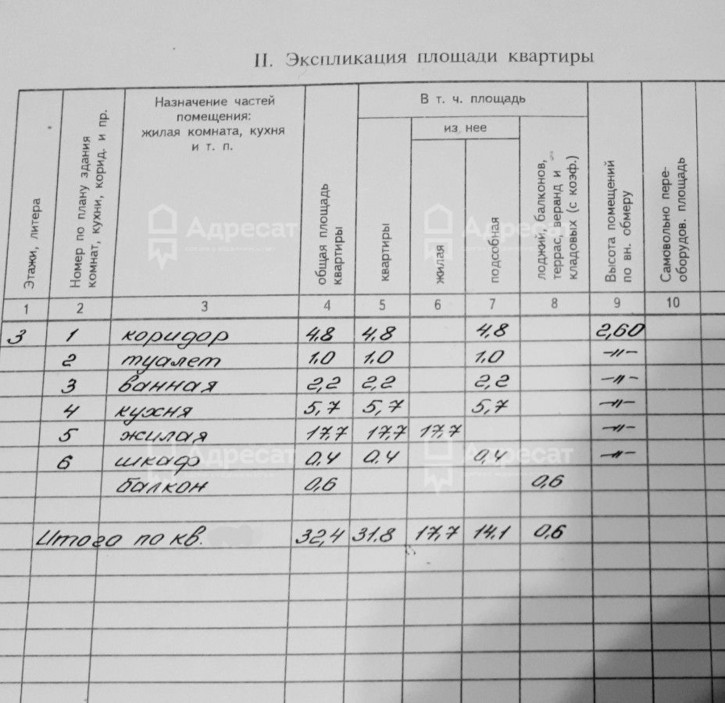 II. Экспликация площади квартиры
Этажи, литера
Номер по плану здания комнат, кухни, корид. и пр.
Назначение частей
помещения:
жилая комната, кухня
и т. п.
общая площадь квартиры
В т. ч. площадь
квартиры
из нее
жилая
подсобная
лоджий, балконов, террас, веранд и кладовых (с коэф.)
Высота помещений по вн. обмеру
Самовольно пере- оборудов. площадь
1 2 3 4 5 6 7 8 9 10
3 1 коридор 4,8 4,8 4,8 2,60
2 туалет 1,0 1,0 1,0 -"-
3 ванная 2,2 2,2 2,2 -"-
4 кухня 5,7 5,7 5,7 -"-
5 жилая 17,7 17,7 17,7 -"-
6 шкаф 0,4 0,4 0,4 -"-
балкон 0,6 0,6
Итого по кв. 32,4 31,8 17,7 14,1 0,6
Адресат
Адресат
Адресат
Адресат